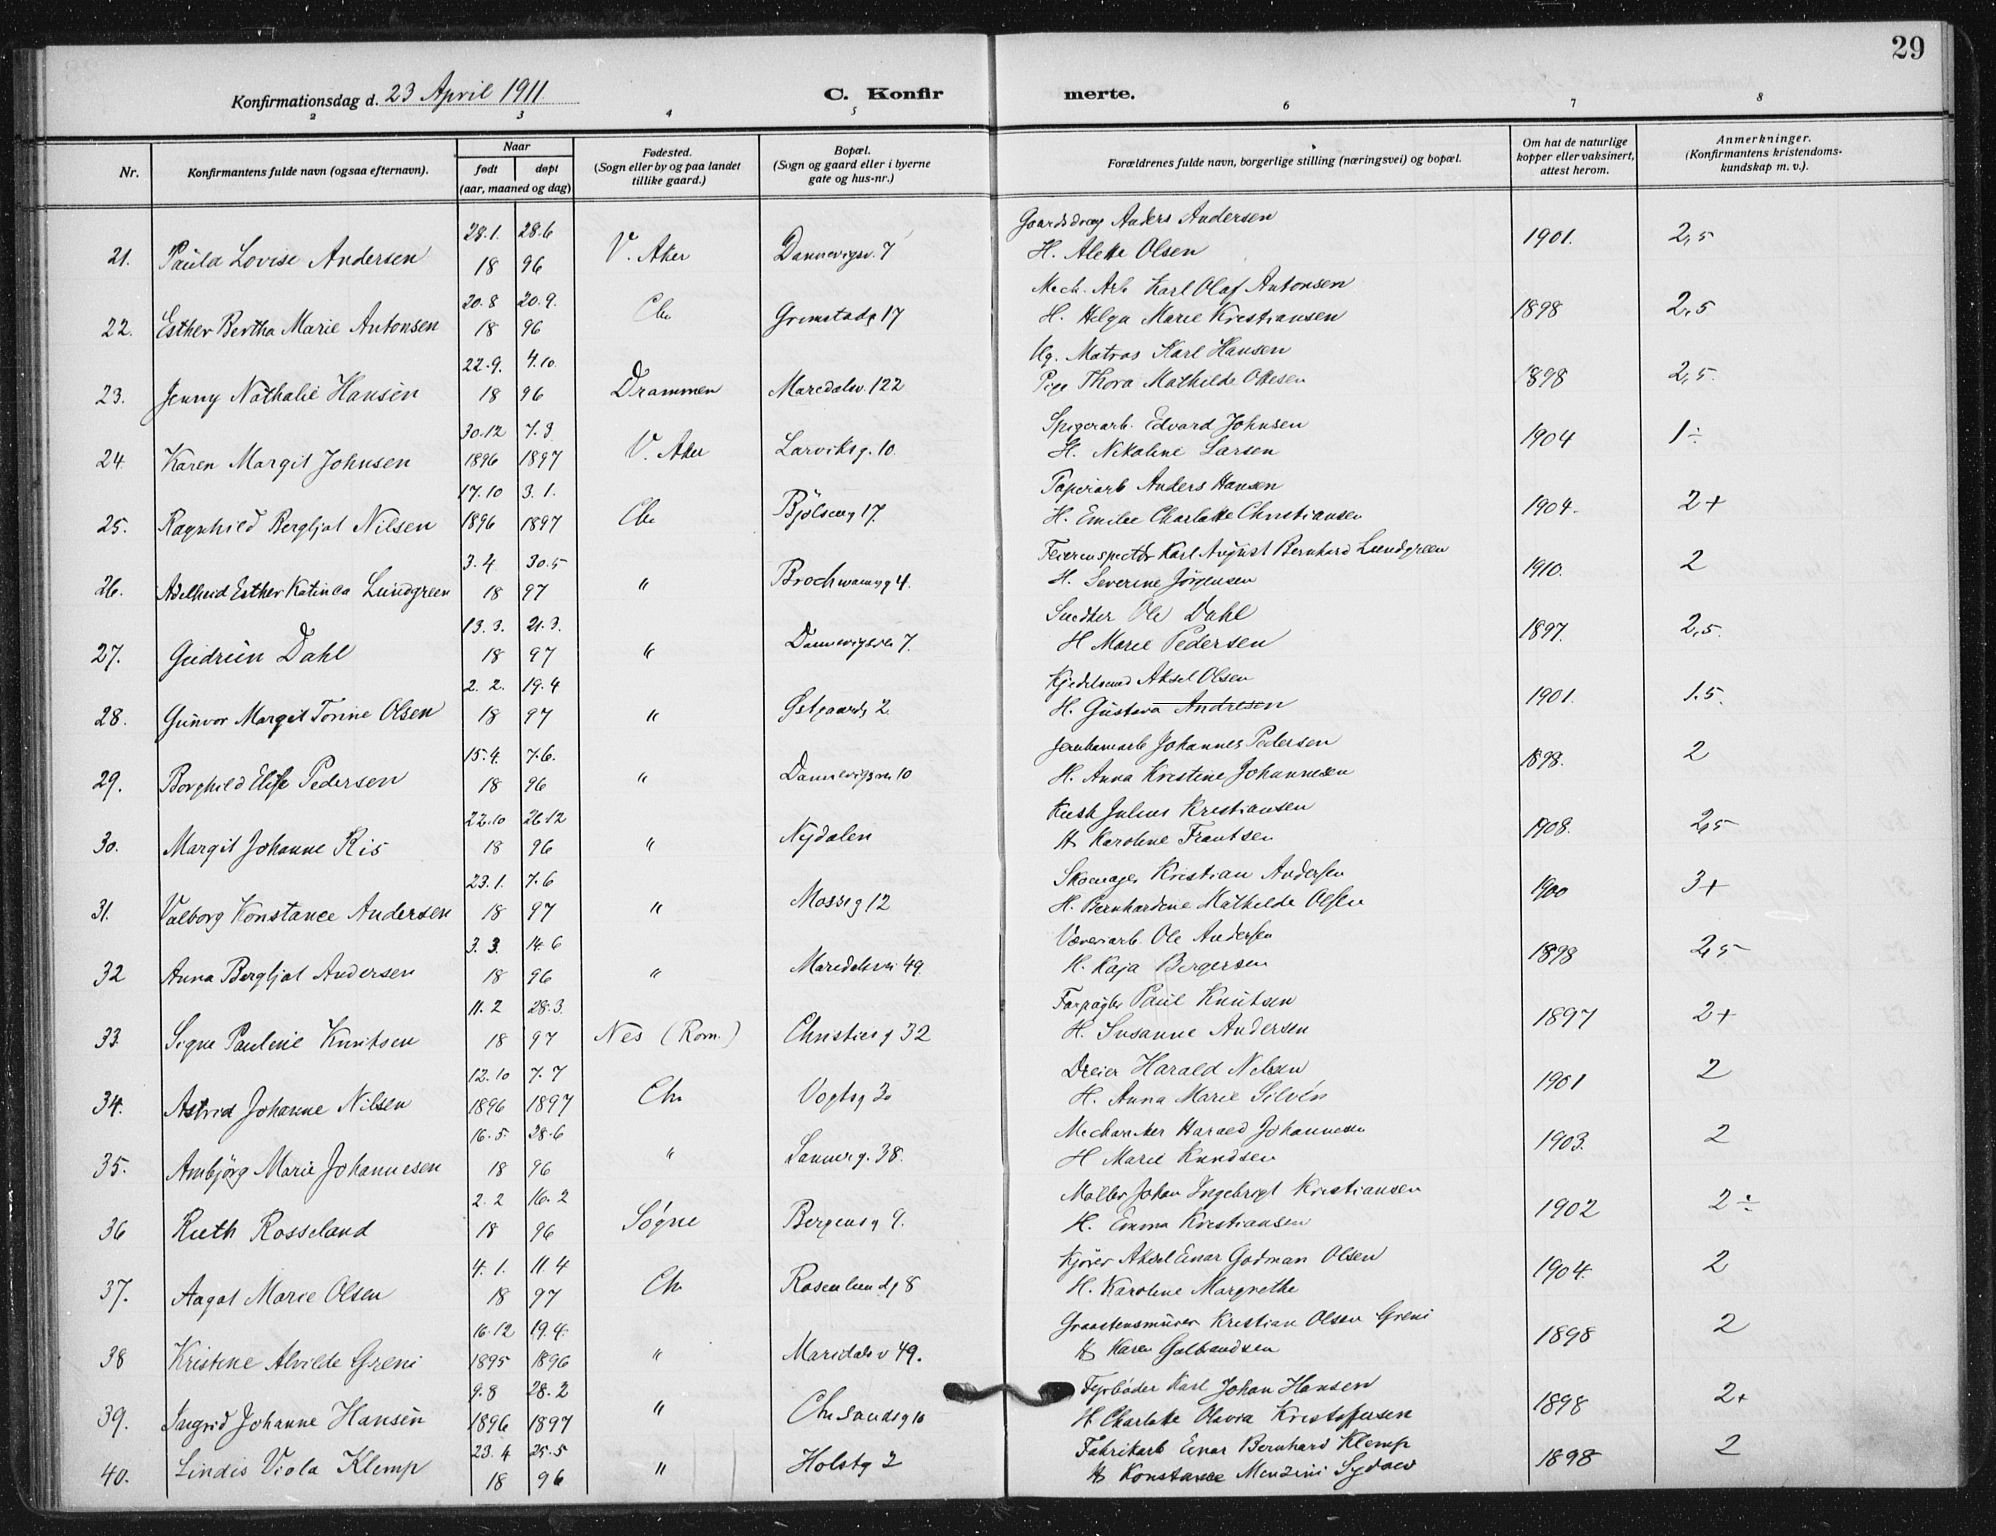 29
Konfirmationsdag d. 23 April 1911
C. Konfir merte.
2 3 4 5 6 7 8
Nr. Konfirmantens fulde navn (ogsaa efternavn). Naar født døpt (aar, maaned og dag) Fødested. (Sogn eller by og paa landet tillike gaard.) Bopæl. (Sogn og gaard eller i byerne gate og hus-nr.) Forældrenes fulde navn, borgerlige stilling (næringsvei) og bopæl. Om hat de naturlige kopper eller vaksinert, attest herom. Anmerkninger. (Konfirmantens kristendoms-kundskap m. v.).
28.1. 28.6 Anders Andersen
21. Paula Lovise Andersen 18 96 V. Aker Dannevigsv. 7 H. Alette Olsen 1901. 2,5
20.8 20.9. Mech. Arb Karl Olaf Antonsen
22. Esther Bertha Marie Antonsen 18 96 Chr Grimstadg 17 H. Helga Marie Kristiansen 1898 2,5
22.9. 4.10. Ug. Matros Karl Hansen
23. Jenny Nathalie Hansen 18 96 Drammen Maredalsv. 122 Pige Thora Mathilde Ottesen 1898 2,5.
30.12 7.3 Spigerarb. Edvard Johnsen
24. Karen Margit Johnsen 1896 1897 V. Aker Larviksg. 10. H. Nikoline Larsen 1904 1÷
17.10 3.1. Papirarb Anders Hansen
25. Ragnhild Bergljot Nilsen 1896 1897 Chr Bjølseng 17. H. Emilie Charlotte Christiansen 1904. 2+
3.4 30.5 Karl August Bernhard Lundgreen
26. Adelheid Esther Katinca Lundgreen 18 97 " Brochmannsg 4. H. Severine Jørgensen 1910. 2
13.3. 21.3. Snedker Ole Dahl
27. Gudrun Dahl 18 97 " Dannevigsvei 7. H Marie Pedersen 1897. 2,5.
2.2. 19.4 Kjedelsmed Aksel Olsen
28. Gunvor Margit Torine Olsen 18 97 " Østgaardsg 2. H. Gustava Andresen 1901. 1.5.
15.4. 7.6. Johannes Pedersen
29. Borghild Elise Pedersen 18 96 " Dannevigsvei 10 H. Anna Kristine Johannesen 1898. 2
22.10 26.12 Kusk Julius Kristiansen
30. Margit Johanne Ris 18 96 " Nydalen H Karoline Frantsen 1908. 2,5
23.1. 7.6 Skomager Kristian Andersen
31. Valborg Konstance Andersen 18 97 " Mosseg 12 H. Bernhardine Mathilde Olsen 1900 3+
3.3. 14.6 Væveriarb. Ole Andersen
32 Anna Bergljot Andersen 18 96 " Maridalsvei 49. H. Kaja Bergersen 1898 2,5
11.2 28.3. Paul Knutsen
33. Signe Pauline Knutsen 18 97 Nes (Rom.) Christiesg 32 H. Susanne Andersen 1897 2+
12.10 7.7 Dreier Harald Nilsen
34. Astrid Johanne Nilsen 1896 1897 Chr Vogtsg H. Anna Marie Silvén 1901 2
16.5. 28.6 Mechaniker Harald Johannesen
35. Ambjørg Marie Johannesen 18 96 " Sannerg. 38. H Marie Knudsen 1903. 2
2.2 16.2 Møller Johan Ingebrigt Kristiansen
36 Ruth Rosseland 18 96 Søgne Bergensg 9. H. Emma Kristiansen 1902 2÷
4.1. 11.4 Kjører Aksel Einar Godman Olsen
37. Aagot Marie Olsen 18 97 Chr Rosenlundg 8 H. Karoline Margrethe 1904. 2
16.12 19.4. Graastensmurer Kristian Olsen Greni
38 Kristine Alvilde Greni 1895 1896 " Maridalsv 49. H Karen Gulbrandsen 1898 2
9.8 28.2 Fyrbøder Karl Johan Hansen
39. Ingrid Johanne Hansen 1896 1897 " Chr.sandsg 10 H. Charlotte Olavia Kristoffersen 1898 2+
23.4 25.5 Fabrikarb Einar Bernhard Klemp
40. Lindis Viola Klemp 18 96 " Holstg 2 H Konstance Menzini 1898 2